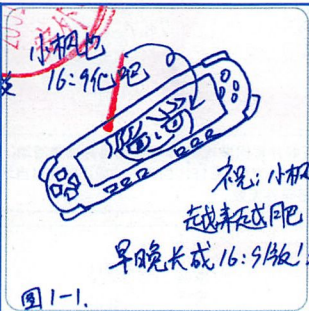 小枫也
16:9化吧
祝：小枫
越来越肥
早晚长成16:9版！
图1-1.